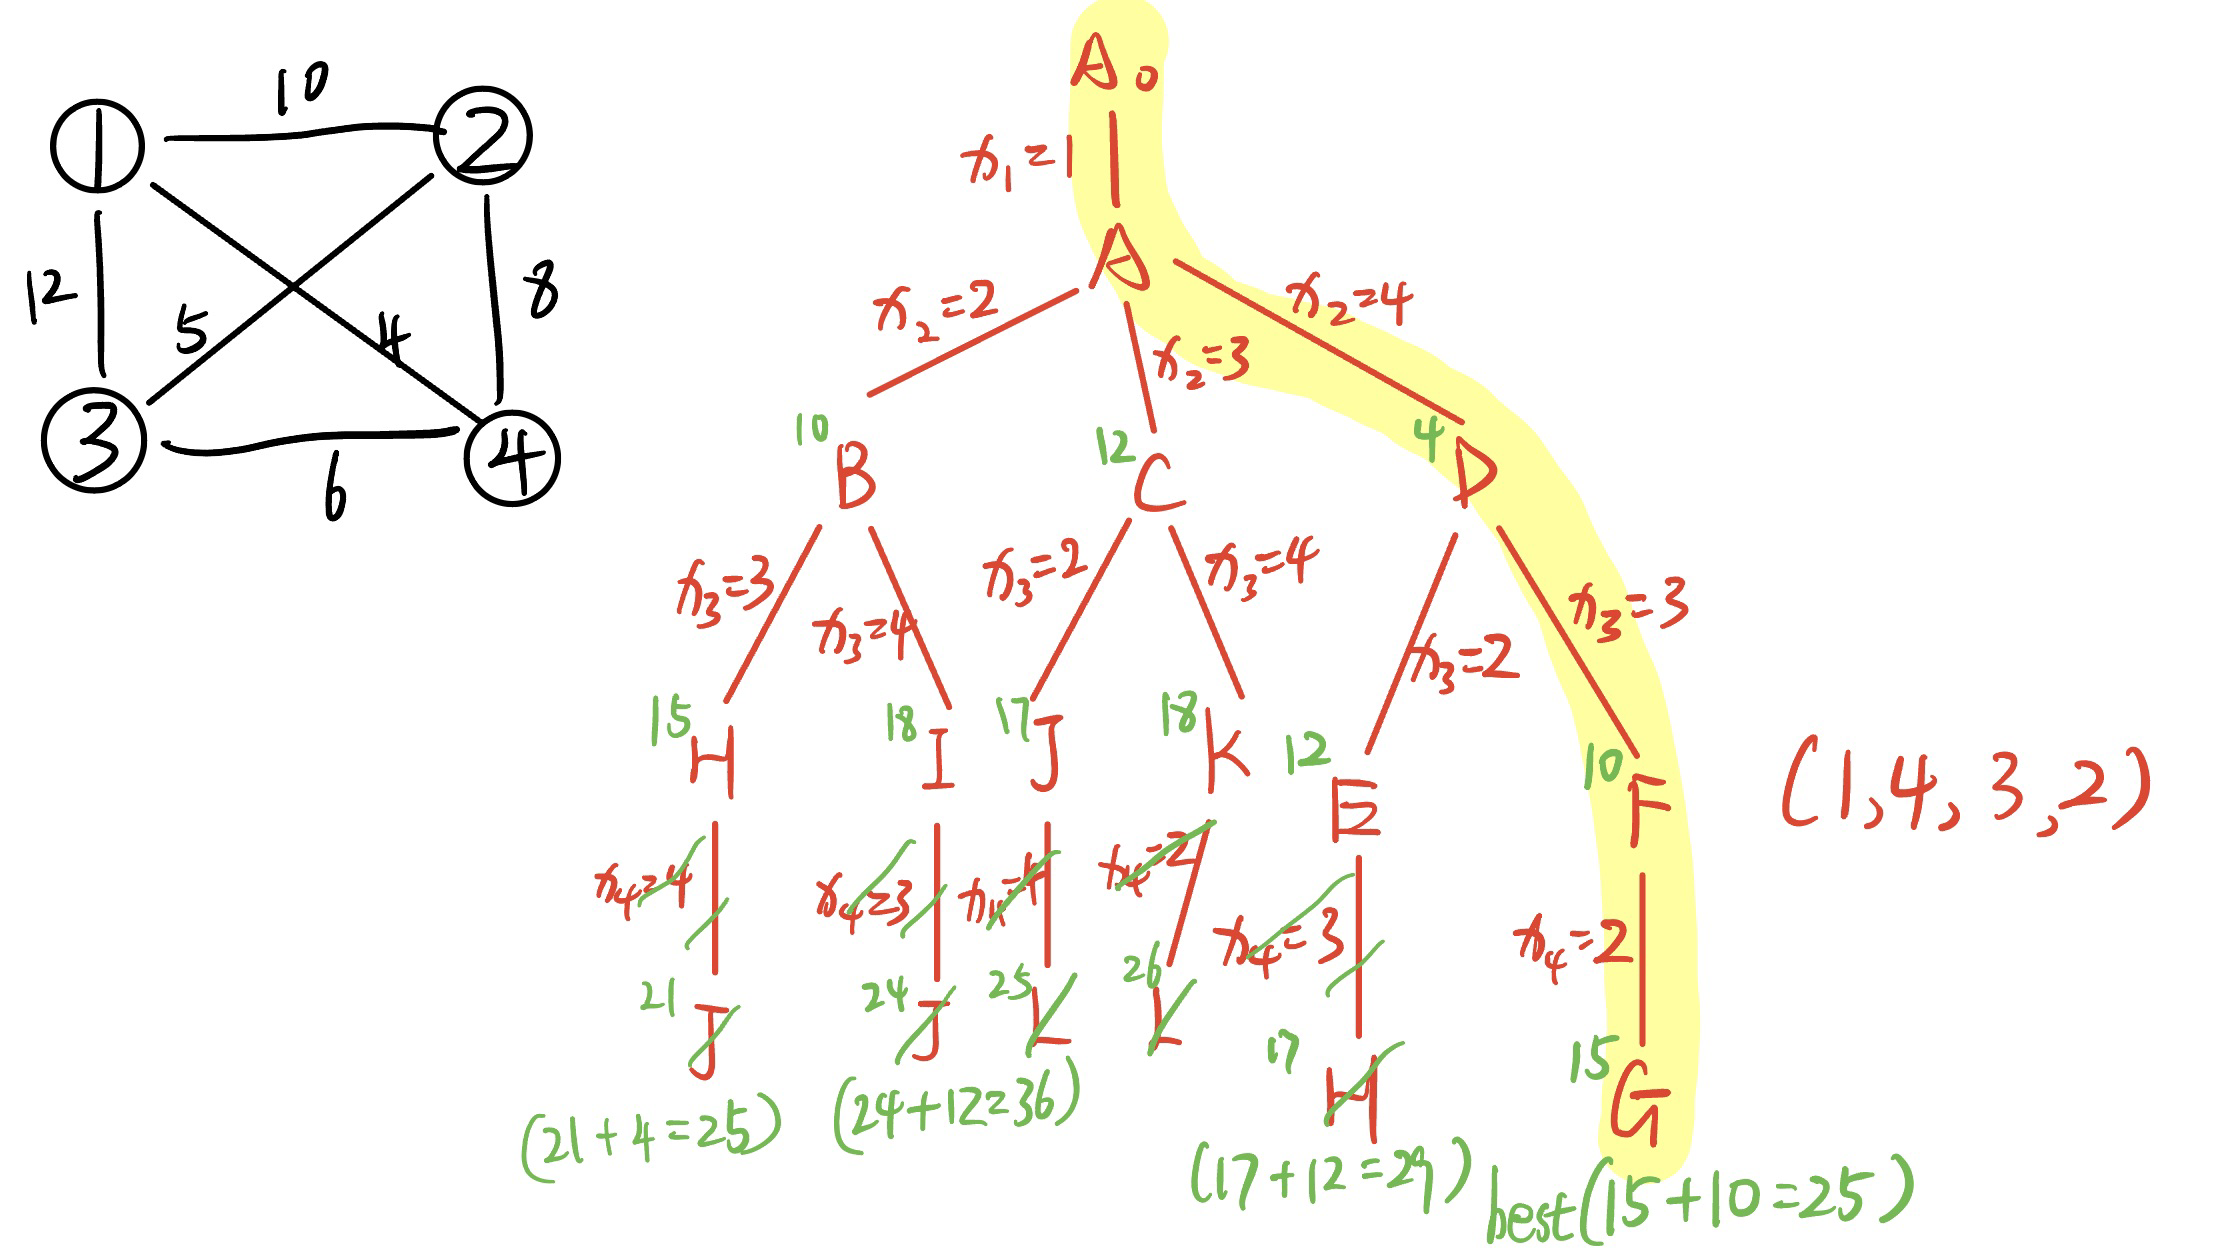 10
1
2
12
5
4
8
3
4
6
A0
x1=1
A
x2=2
x2=3
x2=4
10
B
12
C
4
D
x3=3
x3=4
x3=2
x3=4
x3=2
x3=3
15
H
18
I
17
J
18
K
12
E
10
F
(1,4,3,2)
x4=4
x4=3
x4=4
x4=2
x4=3
x4=2
21
J
24
J
25
L
26
L
17
H
15
G
(21+4=25)
(24+12=36)
(17+12=29)
best(15+10=25)